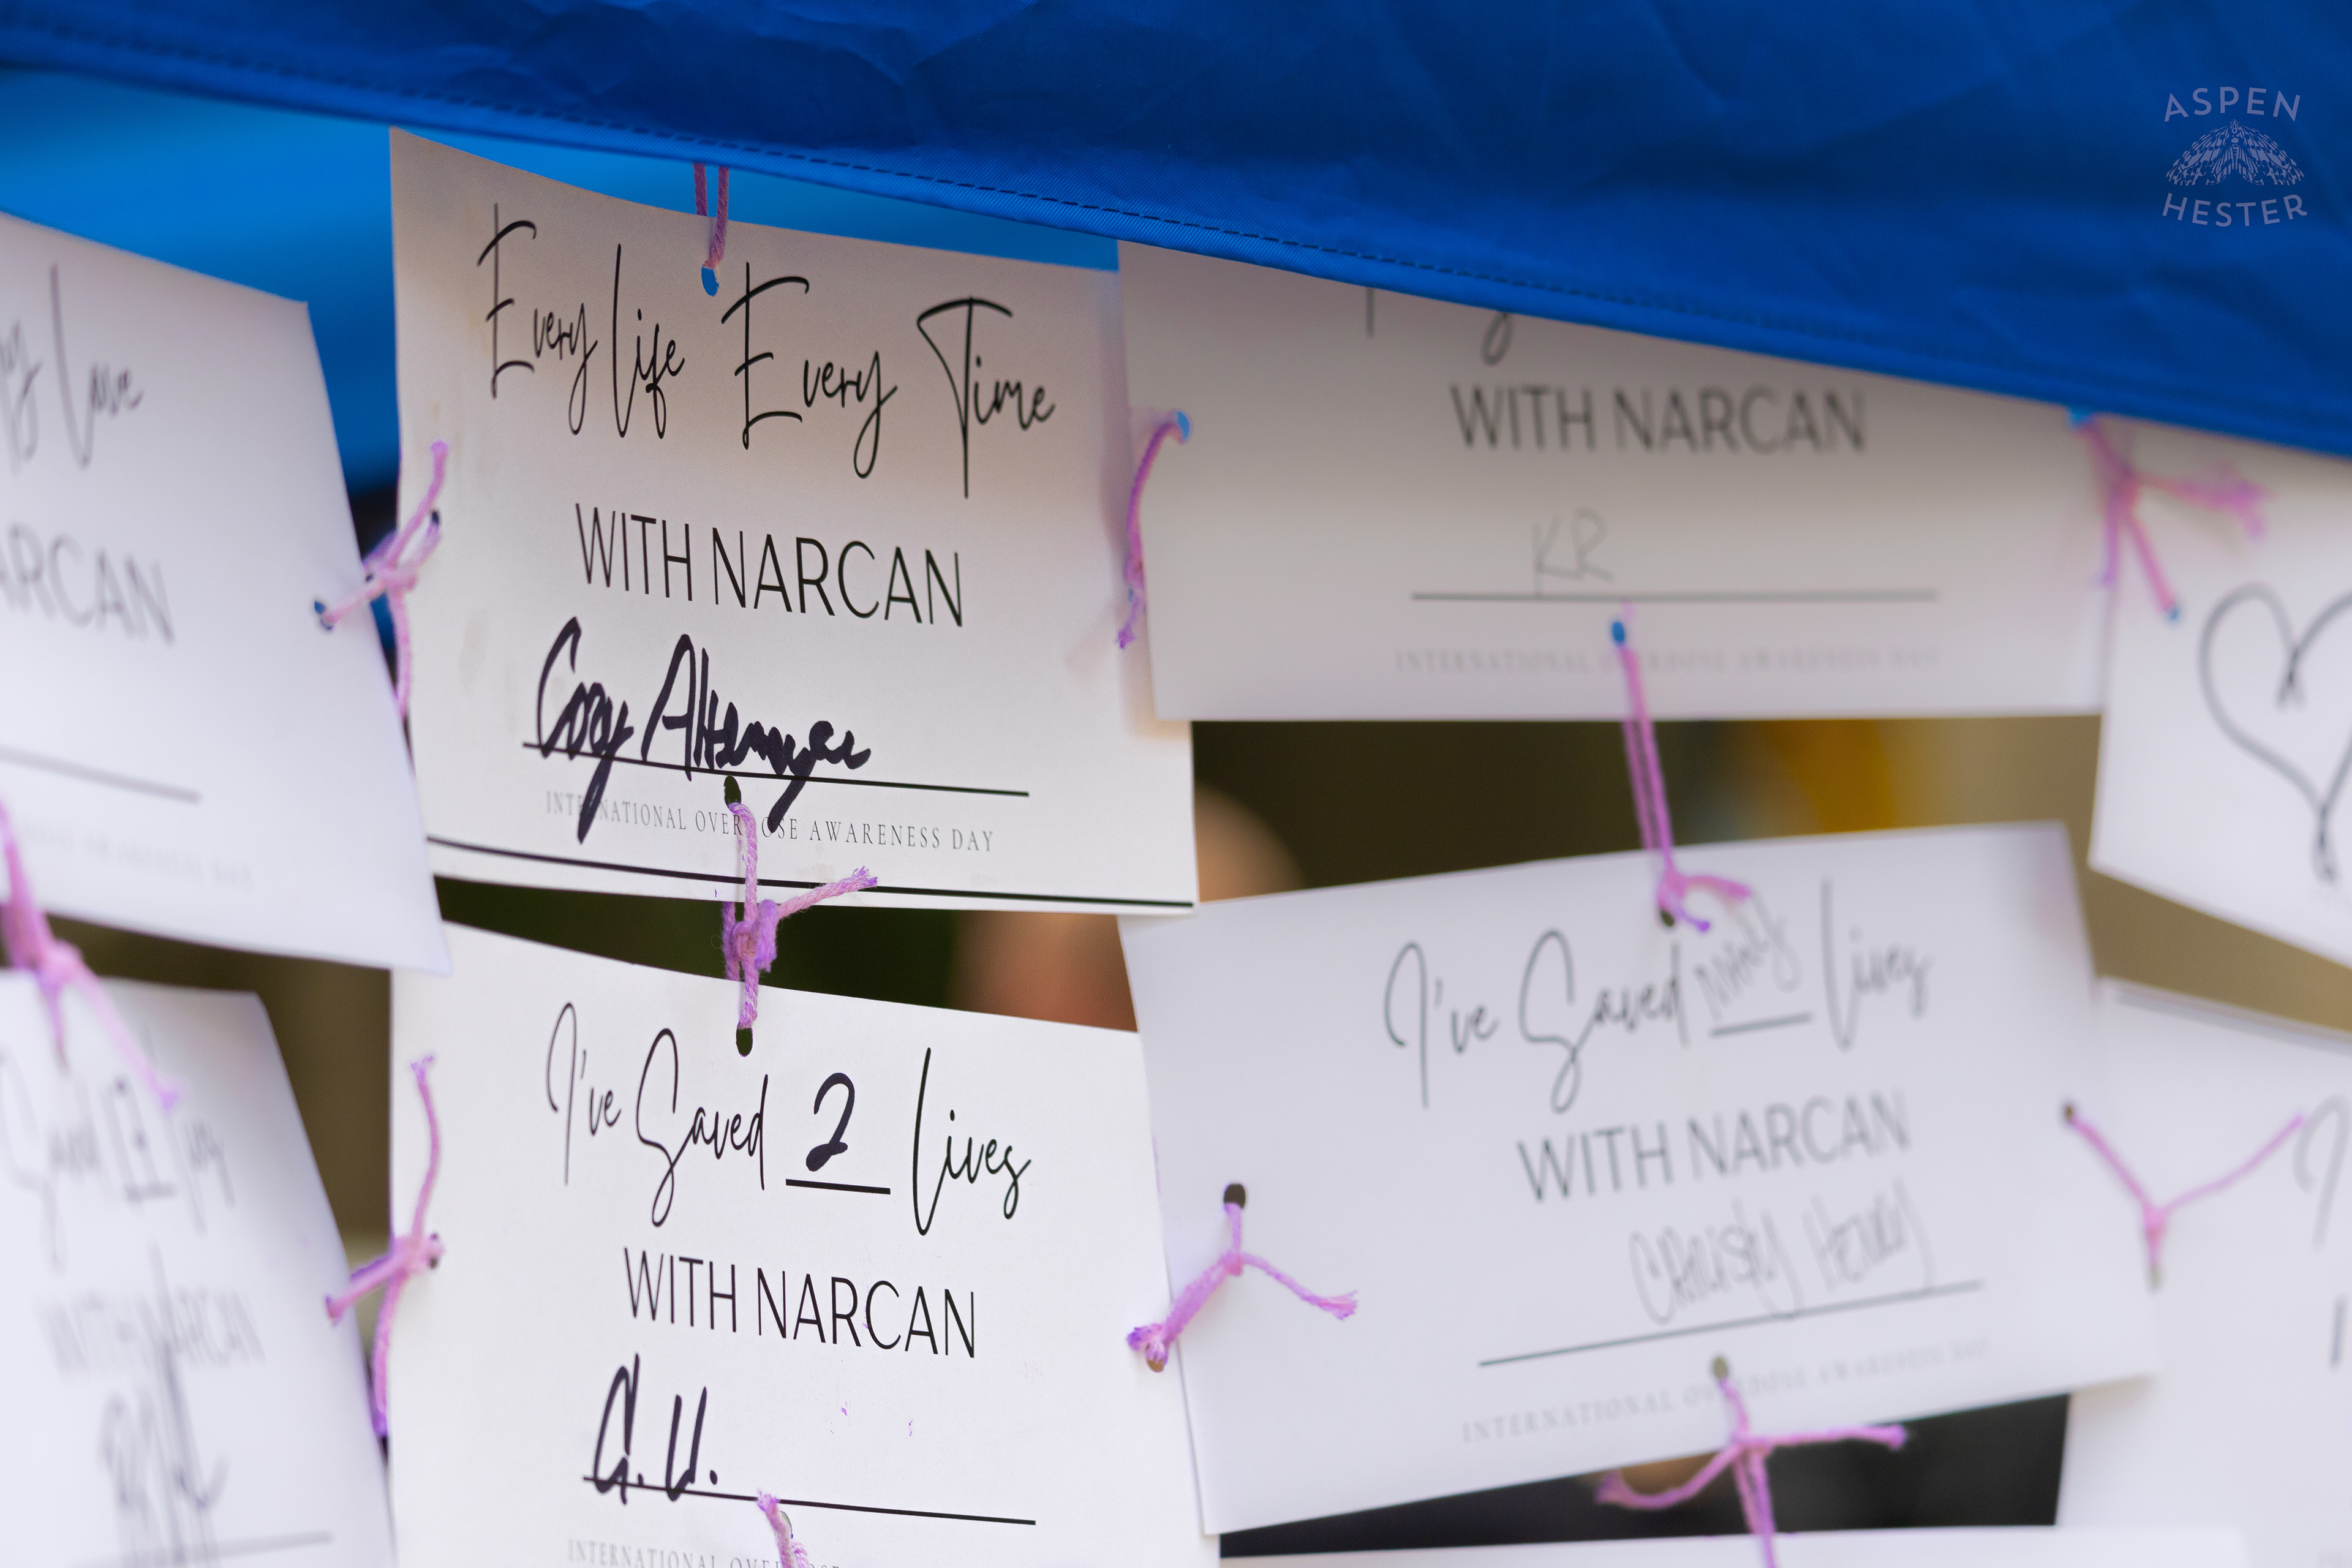 ASPEN
HESTER
Love
NARCAN
Every Life Every Time
WITH NARCAN
Cory
INTERNATIONAL OVERDOSE AWARENESS DAY
WITH NARCAN
KR
INTERNATIONAL OVERDOSE AWARENESS DAY
Saved
WITH NARCAN
I've Saved 2 Lives
WITH NARCAN
INTERNATIONAL
I've Saved MANY Lives
WITH NARCAN
CHRISTY HENRY
INTERNATIONAL OVERDOSE AWARENESS DAY